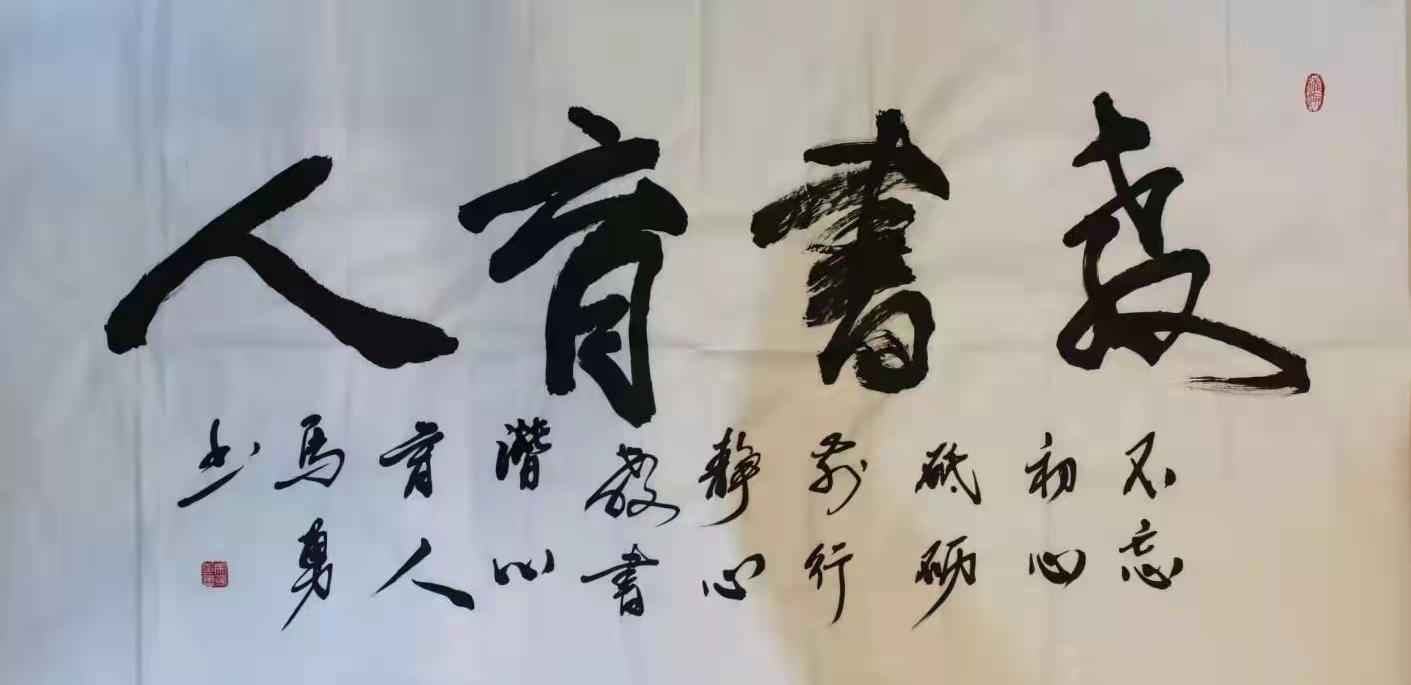 教書育人
不忘
初心
砥砺
前行
静心
教書
潜心
育人
馬勇
书